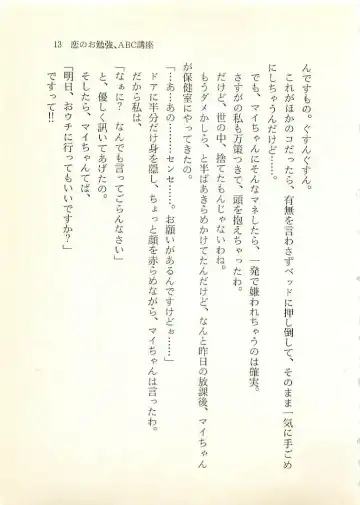 13 恋のお勉強、ABC講座
んですもの。ぐすんぐすん。
これがほかのコだったら、有無を言わさずベッドに押し倒して、そのまま一気に手ごめ
にしちゃうんだけど……。
でも、マイちゃんにそんなマネしたら、一発で嫌われちゃうのは確実。
さすがの私も万策つきて、頭を抱えちゃったわ。
だけど、世の中、捨てたもんじゃないわね。
もうダメかしら、と半ばあきらめかけてたんだけど、なんと昨日の放課後、マイちゃん
が保健室にやってきたの。
「…あ…あの………センセ……。お願いがあるんですけどぉ……」
ドアに半分だけ身を隠し、ちょっと顔を赤らめながら、マイちゃんは言ったわ。
だから私は、
「なぁに？ なんでも言ってごらんなさい」
と、優しく訊いてあげたの。
そしたら、マイちゃんてば、
「明日、おウチに行ってもいいですか？」
ですって!!